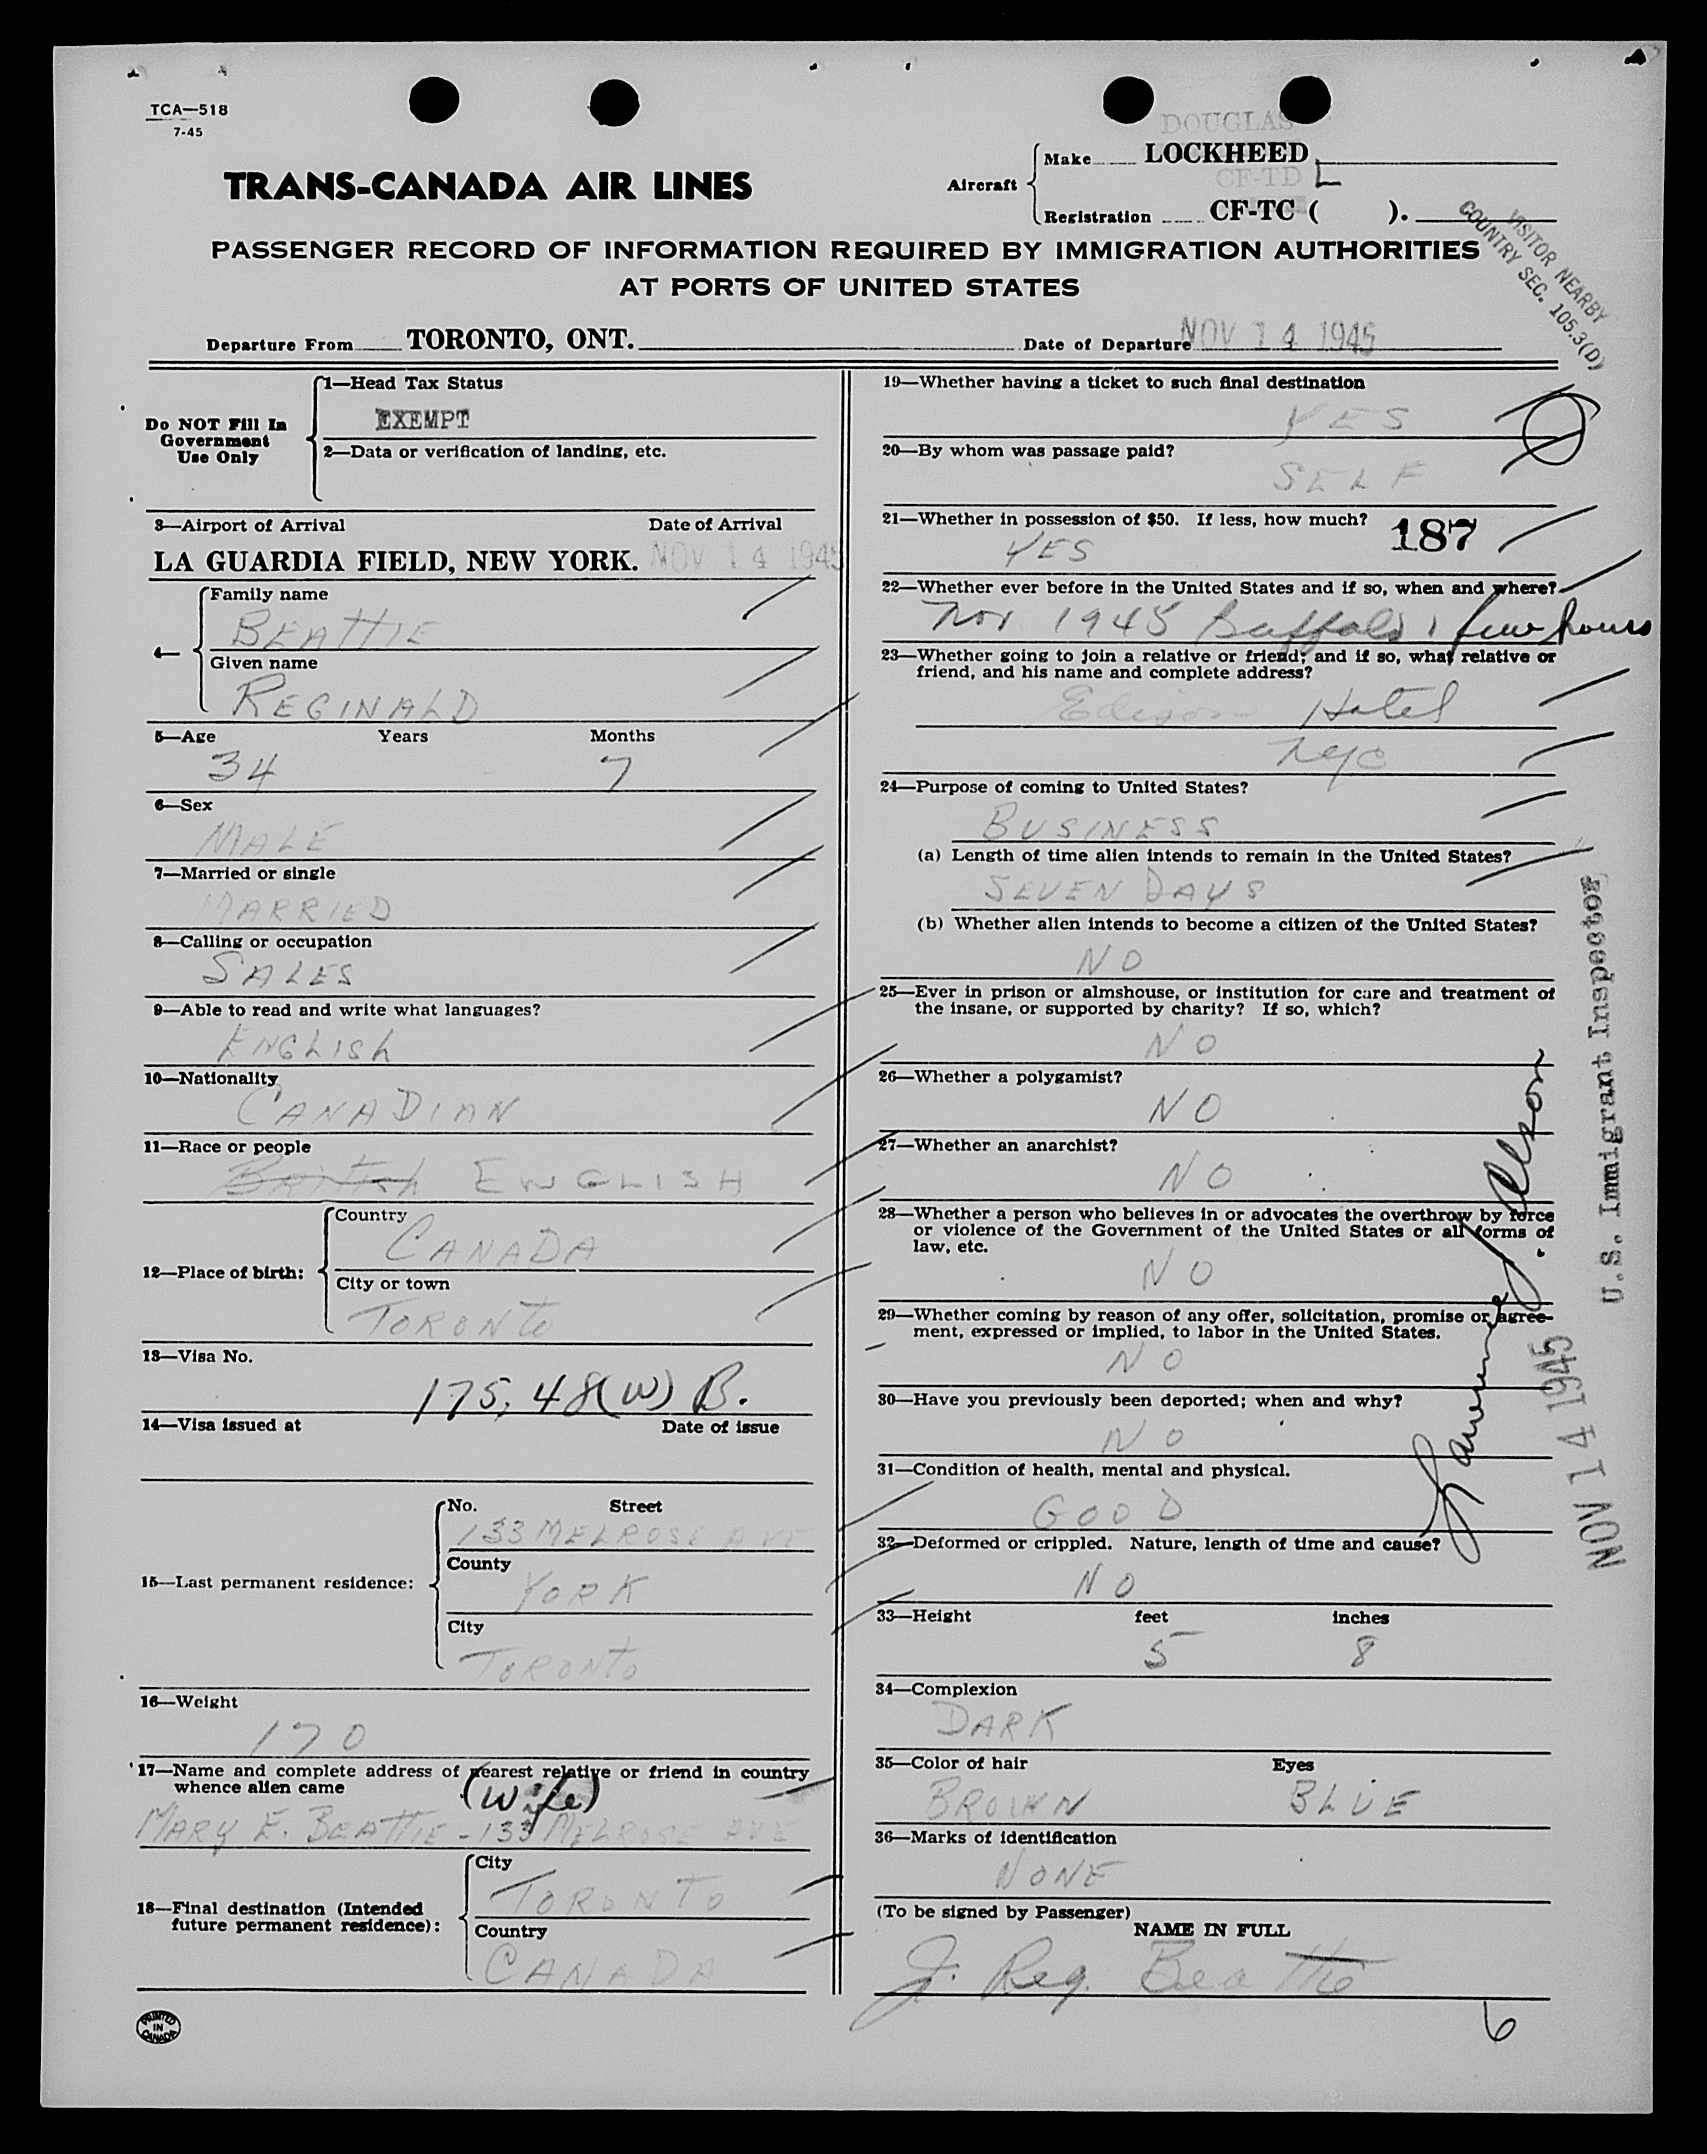 TCA—518
7-45
TRANS-CANADA AIR LINES
DOUGLAS
Aircraft
Make LOCKHEED
CF-TD L
Registration CF-TC ( ).
VISITOR NEARBY
COUNTRY SEC. 105.3(D)
PASSENGER RECORD OF INFORMATION REQUIRED BY IMMIGRATION AUTHORITIES
AT PORTS OF UNITED STATES
Departure From TORONTO, ONT.
Date of Departure NOV 14 1945
Do NOT Fill In
Government
Use Only
1—Head Tax Status
EXEMPT
2—Data or verification of landing, etc.
3—Airport of Arrival Date of Arrival
LA GUARDIA FIELD, NEW YORK. NOV 14 1945
4—
Family name
BEATTIE
Given name
REGINALD
5—Age Years Months
34 7
6—Sex
MALE
7—Married or single
MARRIED
8—Calling or occupation
SALES
9—Able to read and write what languages?
ENGLISH
10—Nationality
CANADIAN
11—Race or people
British ENGLISH
12—Place of birth:
Country
CANADA
City or town
TORONTO
13—Visa No.
175,48(W) B.
14—Visa issued at Date of issue
15—Last permanent residence:
No. Street
133 MELROSE AVE
County
YORK
City
TORONTO
16—Weight
170
17—Name and complete address of nearest relative or friend in country
whence alien came
(wife)
MARY E. BEATTIE - 133 MELROSE AVE
18—Final destination (Intended
future permanent residence):
City
TORONTO
Country
CANADA
PRINTED
IN
CANADA
19—Whether having a ticket to such final destination
YES
20—By whom was passage paid?
SELF
21—Whether in possession of $50. If less, how much?
YES
187
22—Whether ever before in the United States and if so, when and where?
Nov 1945 Buffalo, few hours
23—Whether going to join a relative or friend; and if so, what relative or
friend, and his name and complete address?
Edison Hotel
NYC
24—Purpose of coming to United States?
BUSINESS
(a) Length of time alien intends to remain in the United States?
SEVEN DAYS
(b) Whether alien intends to become a citizen of the United States?
NO
25—Ever in prison or almshouse, or institution for care and treatment of
the insane, or supported by charity? If so, which?
NO
26—Whether a polygamist?
NO
27—Whether an anarchist?
NO
28—Whether a person who believes in or advocates the overthrow by force
or violence of the Government of the United States or all forms of
law, etc.
NO
29—Whether coming by reason of any offer, solicitation, promise or agree-
ment, expressed or implied, to labor in the United States.
NO
30—Have you previously been deported; when and why?
NO
31—Condition of health, mental and physical.
GOOD
32—Deformed or crippled. Nature, length of time and cause?
NO
33—Height feet inches
5 8
34—Complexion
DARK
35—Color of hair Eyes
BROWN BLUE
36—Marks of identification
NONE
(To be signed by Passenger)
NAME IN FULL
J. Reg. Beattie
6
U.S. Immigrant Inspector
NOV 14 1945